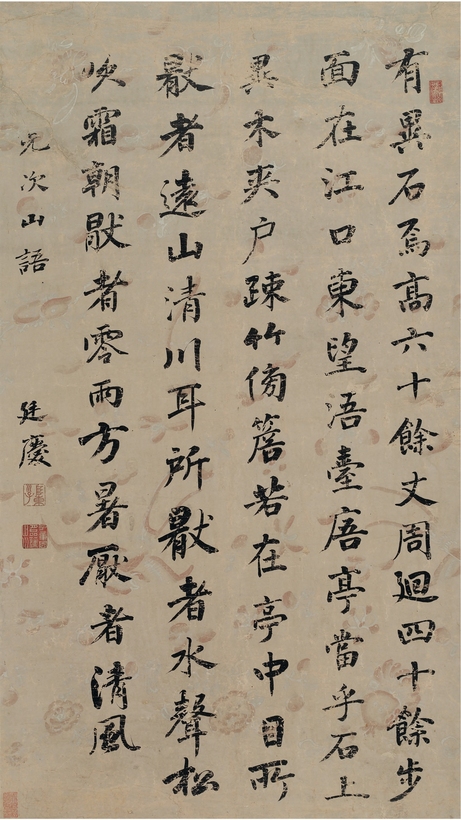 有異石焉高六十餘丈周廻四十餘步
面在江口東望浯臺㢈亭當乎石上
異木夾户疎竹傍簷若在亭中目所
猒者遠山清川耳所猒者水聲松
吹霜朝猒者零雨方暑厭者清風
元次山語
廷慶